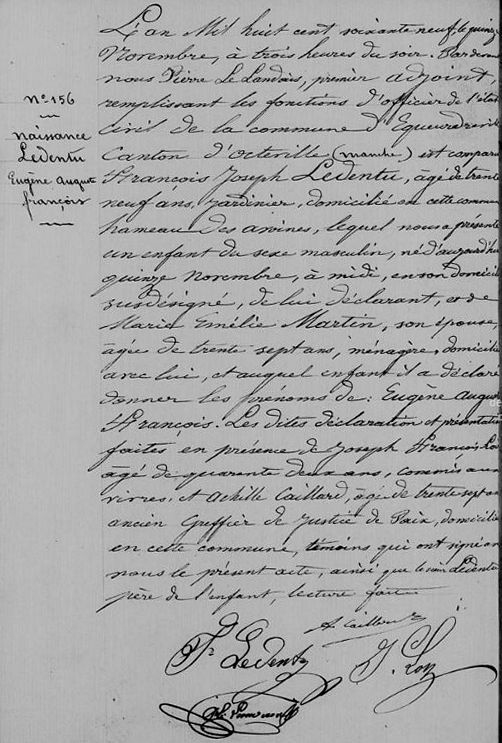 N° 156
Naissance
Ledentu
Eugène August
françois
L'an Mil huit cent soixante neuf, le quinze
Novembre, à trois heures du soir. Par devant
nous Pierre Le Landais, premier adjoint
remplissant les fonctions d'officier de l'état
civil de la commune d'Equeurdreville
Canton d'Octeville (manche) est comparu
François Joseph Ledentu, âgé de trente
neuf ans, jardinier, domicilié en cette commune
hameau des lequel nous a présenté
un enfant du sexe masculin, né d'aujourd'hui
quinze Novembre, à midi, en son domicile
susdésigné, de lui déclarant, et de
Marie Emélie Martin, son épouse,
âgée de trente sept ans, ménagère, domiciliée
avec lui, et auquel enfant il a déclaré
donner les prénoms de : Eugène August
François. Les dites déclaration et présentation
faites en présence de Joseph François
âgé de quarante deux ans, commis aux
vivres, et Achille Caillard, âgé de trente sept ans
ancien Greffier de Justice de Paix, domiciliés
en cette commune, témoins qui ont signé avec
nous le présent acte, ainsi que le Ledentu
père de l'enfant, lecture faite
A. Caillard
Fs Ledentu
J.